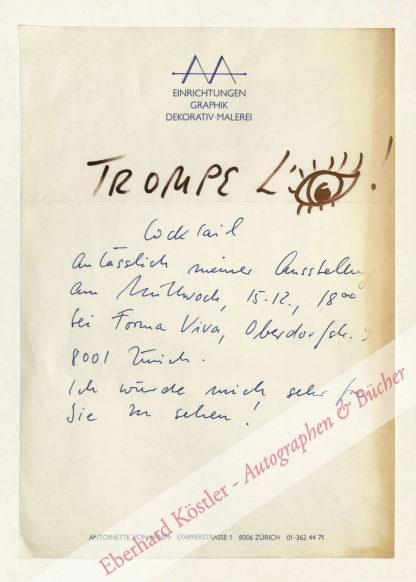 EINRICHTUNGEN
GRAPHIK
DEKORATIV-MALEREI
TROMPE L' !
Cocktail
anlässlich meiner Ausstellung
am Mittwoch, 15.12., 18⁰⁰
bei Forma Viva, Oberdorfstr. 
8001 Zürich.
Ich würde mich sehr
Sie zu sehen!
ANTOINETTE STAPFERSTRASSE 1 8006 ZÜRICH 01-362 44 71
Eberhard Köstler - Autographen & Bücher